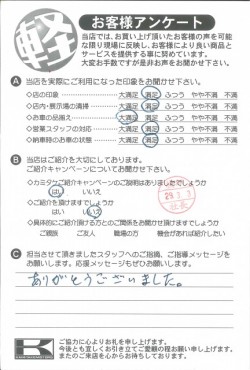 軽
お客様アンケート
当店では、お買い上げ頂いたお客様の声を可能
な限り現場に反映し、お客様により良い商品と
サービスを提供する事に努めています。
大変お手数ですが是非お声をお聞かせ下さい。
A 当店を実際にご利用になった印象をお聞かせ下さい。
◇店の印象 大満足 満足 ふつう やや不満 不満
◇店内・展示場の清掃 大満足 満足 ふつう やや不満 不満
◇お車の品揃え 大満足 満足 ふつう やや不満 不満
◇営業スタッフの対応 大満足 満足 ふつう やや不満 不満
◇納車時のお車の状態 大満足 満足 ふつう やや不満 不満
B 当店はご紹介を大切にしております。
ご紹介キャンペーンについてお聞かせ下さい。
◇カミタケご紹介キャンペーンのご説明はありましたでしょうか
はい いいえ
◇ご紹介を頂けますでしょうか
はい いいえ
◇具体的にご紹介頂ける方とのご関係をお聞かせ頂けますでしょうか
ご親類 ご友人 職場の方 機会があれば紹介したい
C 担当させて頂きましたスタッフへのご指摘、ご指導メッセージを
お願いします。応援メッセージもぜひお願します。
ありがとうございました。
K
ご協力に心よりお礼を申し上げます。
今後とも宜しくお引き立てご愛顧の程お願い申し上げます。
またのご来店を心からお待ちしております。